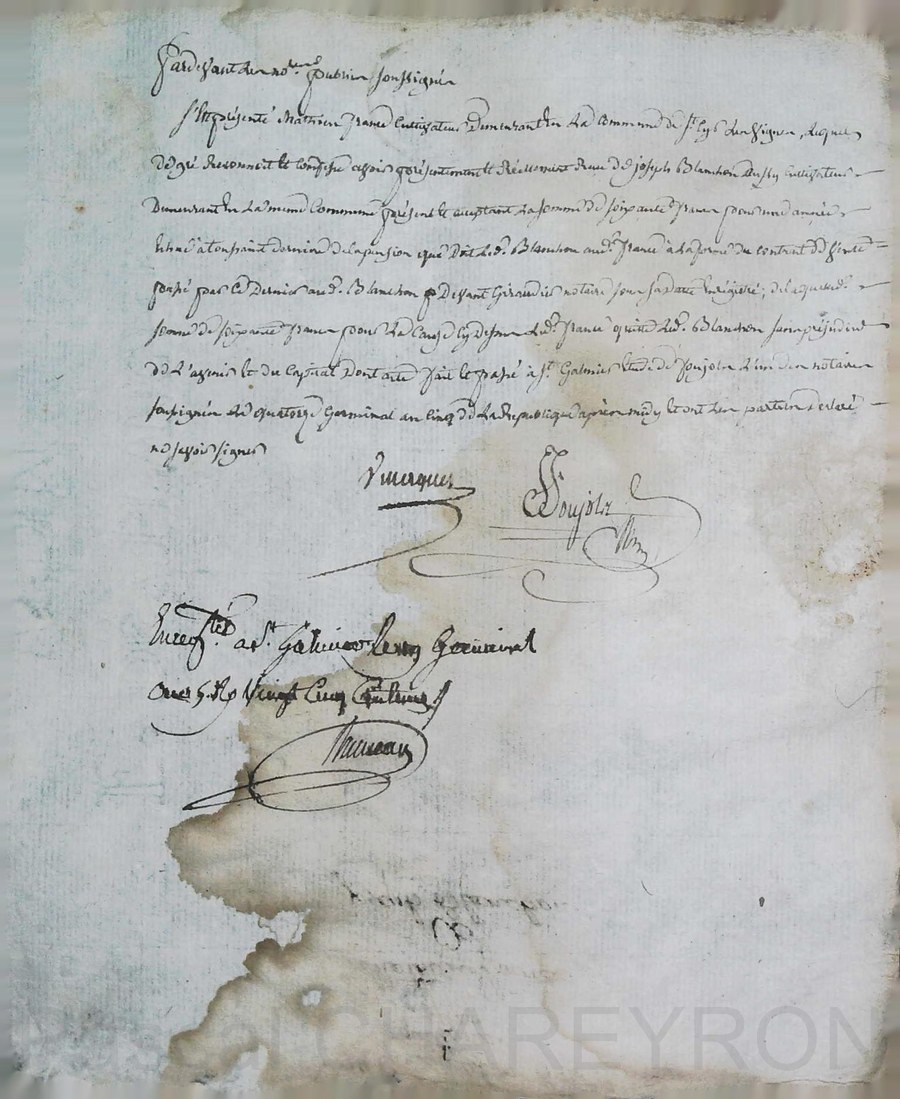 Pardevant les no.res publics soussignés
s'est présenté Mathieu france Cultivateur Demeurant en La Commune de St Cyr les vignes, Lequel
de gré Reconnoit et Confesse avoir présentement et Réellement Reçu de joseph Blanchon aussy cultivateur
Demeurant en La meme Commune présent et acceptant La somme de soixante francs pour une année
échue à la toussaint derniere de la pension que Doit Led. Blanchon aud. france à La forme du contrat de vente
passé par ce Dernier aud. Blanchon pDevant Giraud notaire sous sa datte Enrégistré; de Laquelle
somme de soixante francs pour La Cause cy Dessus Led. france quitte Led. Blanchon sans préjudice
de L'avenir et du Capital Dont acte fait et passé à St Galmier étude de Poujolz L'un des notaires
soussignés Le quatorze Germinal an cinq de La République après midy et ont Les parties Déclaré
ne savoir signer
Poujolz
Nre
Enregtré a St. Galmier le Germinal
an 5. R. Vingt Cinq Centimes
Pascal CHAREYRON